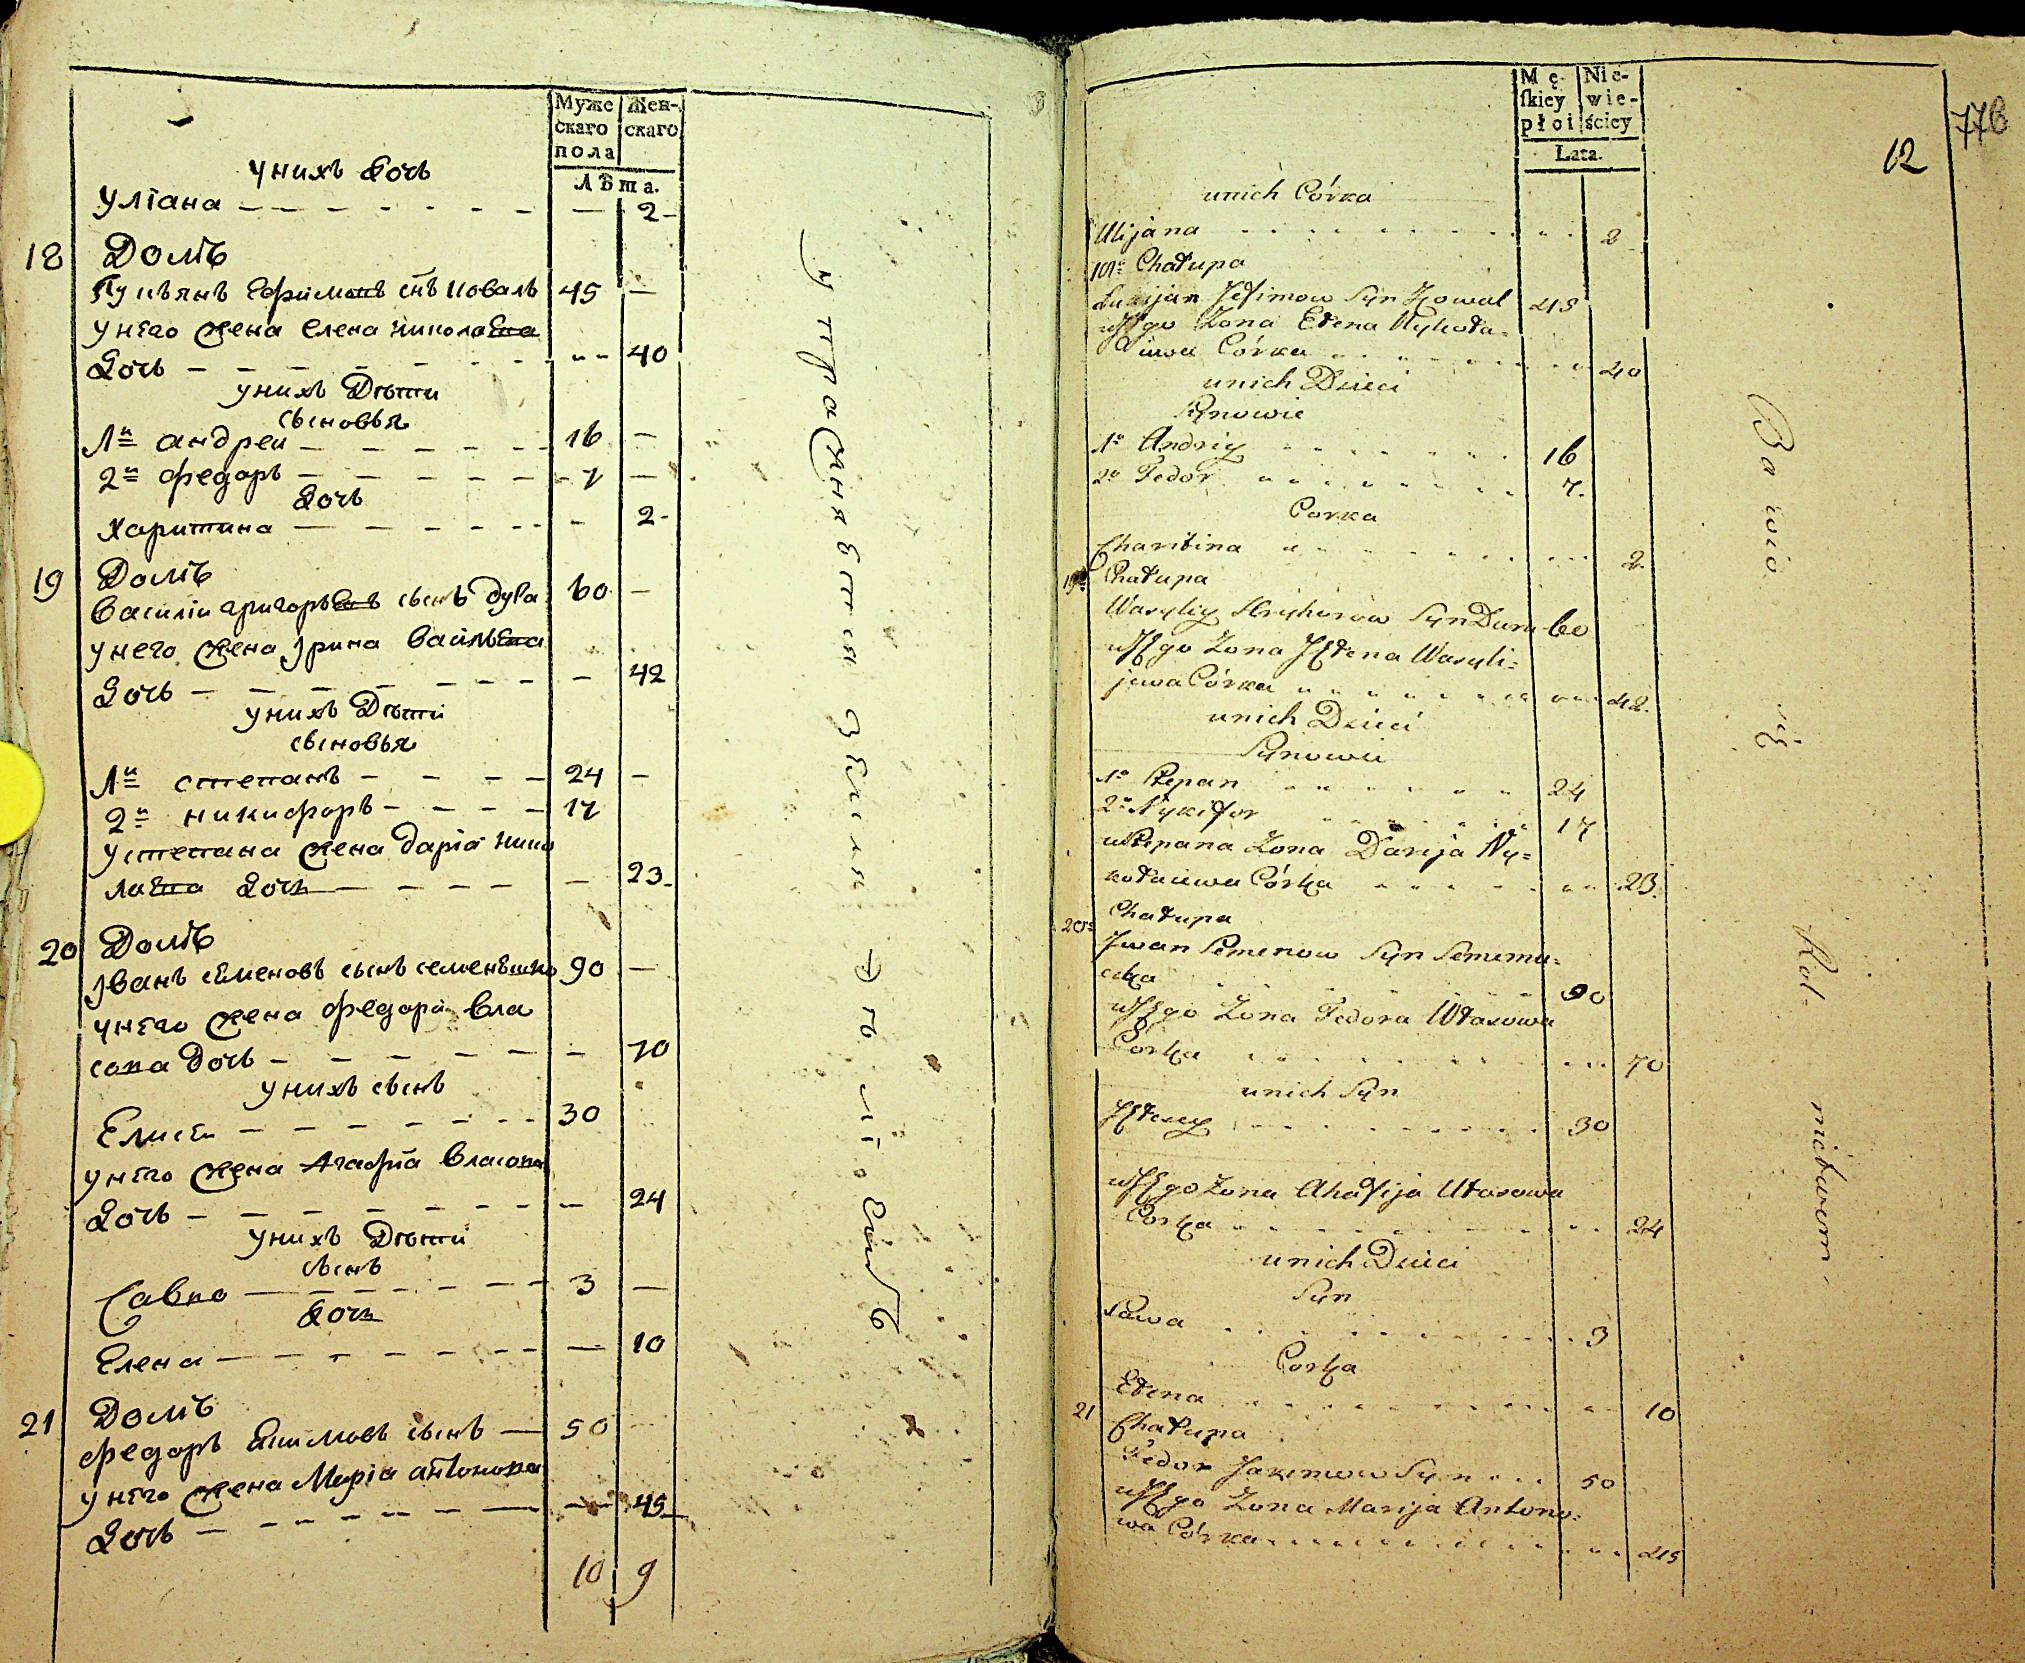 Муже скаго пола
Жен- скаго
Лѣта.
унихъ дочь
Уліана — — — — 2
18 Домъ
Лукьянъ Ефимовъ сн̃ъ коваль 45 —
унего жена елена николаева
дочь — — — — 40
унихъ Дѣти
сыновья
1й андреи — — — 16 —
2й федоръ — — — 7 —
дочь
Харитина — — — — 2
19 Домъ
Василіи григорьевъ сынъ дуба 60 —
унего жена Ирина Васильева
дочь — — — — 42
унихъ Дѣти
сыновья
1й степанъ — — — 24 —
2й никифоръ — — — 17
устепана жена дарія нико
лаева дочь — — — — 23
20 Домъ
Иванъ семеновъ сынъ 90 —
унего жена федора вла
сова дочь — — — — 70
унихъ сынъ
Елисеи — — — 30
унего жена Агафіа власова
дочь — — — — 24
унихъ Дѣти
сынъ
Савка — — — 3 —
дочь
Елена — — — — 10
21 Домъ
федоръ Екимовъ сынъ — 50
унего жена Маріа антонова
дочь — — — — 45
10 9
упражняется землѣ
Mę- skiey płci
Nie- wie- ściey
Lata.
776
12
unich Córka
Ulijana 2
18o Chałupa
Łukijan Jefimow Syn Kowal 45
uJego Zona Ełena Nykoła-
iewa Córka 40
unich Dzieci
Synowie
1o Andriy 16
2o Fedor 7
Corka
Charitina 2
19o Chałupa
Wasyliy Hryhorow Syn Duru 60
uJego Zona Jełena Wasyli-
jewa Córka 42
unich Dzieci
Synowie
1o Stepan 24
2o Nykifor 17
uStepana Zona Darija Ny-
kołaiewa Córka 23
20o Chałupa
Jwan Semenow Syn
90
uJego Zona Fedora Własowa
Corka 70
unich Syn
30
uJego Zona Ahafija Ułasowa
Corka 24
unich Dzieci
Syn
Sawa 3
Corka
Ełena 10
21 Chałupa
Fedor Jakimow Syn 50
uJego Zona Marija Antono-
wa Córka 45
Bawio się Rol- nictwem